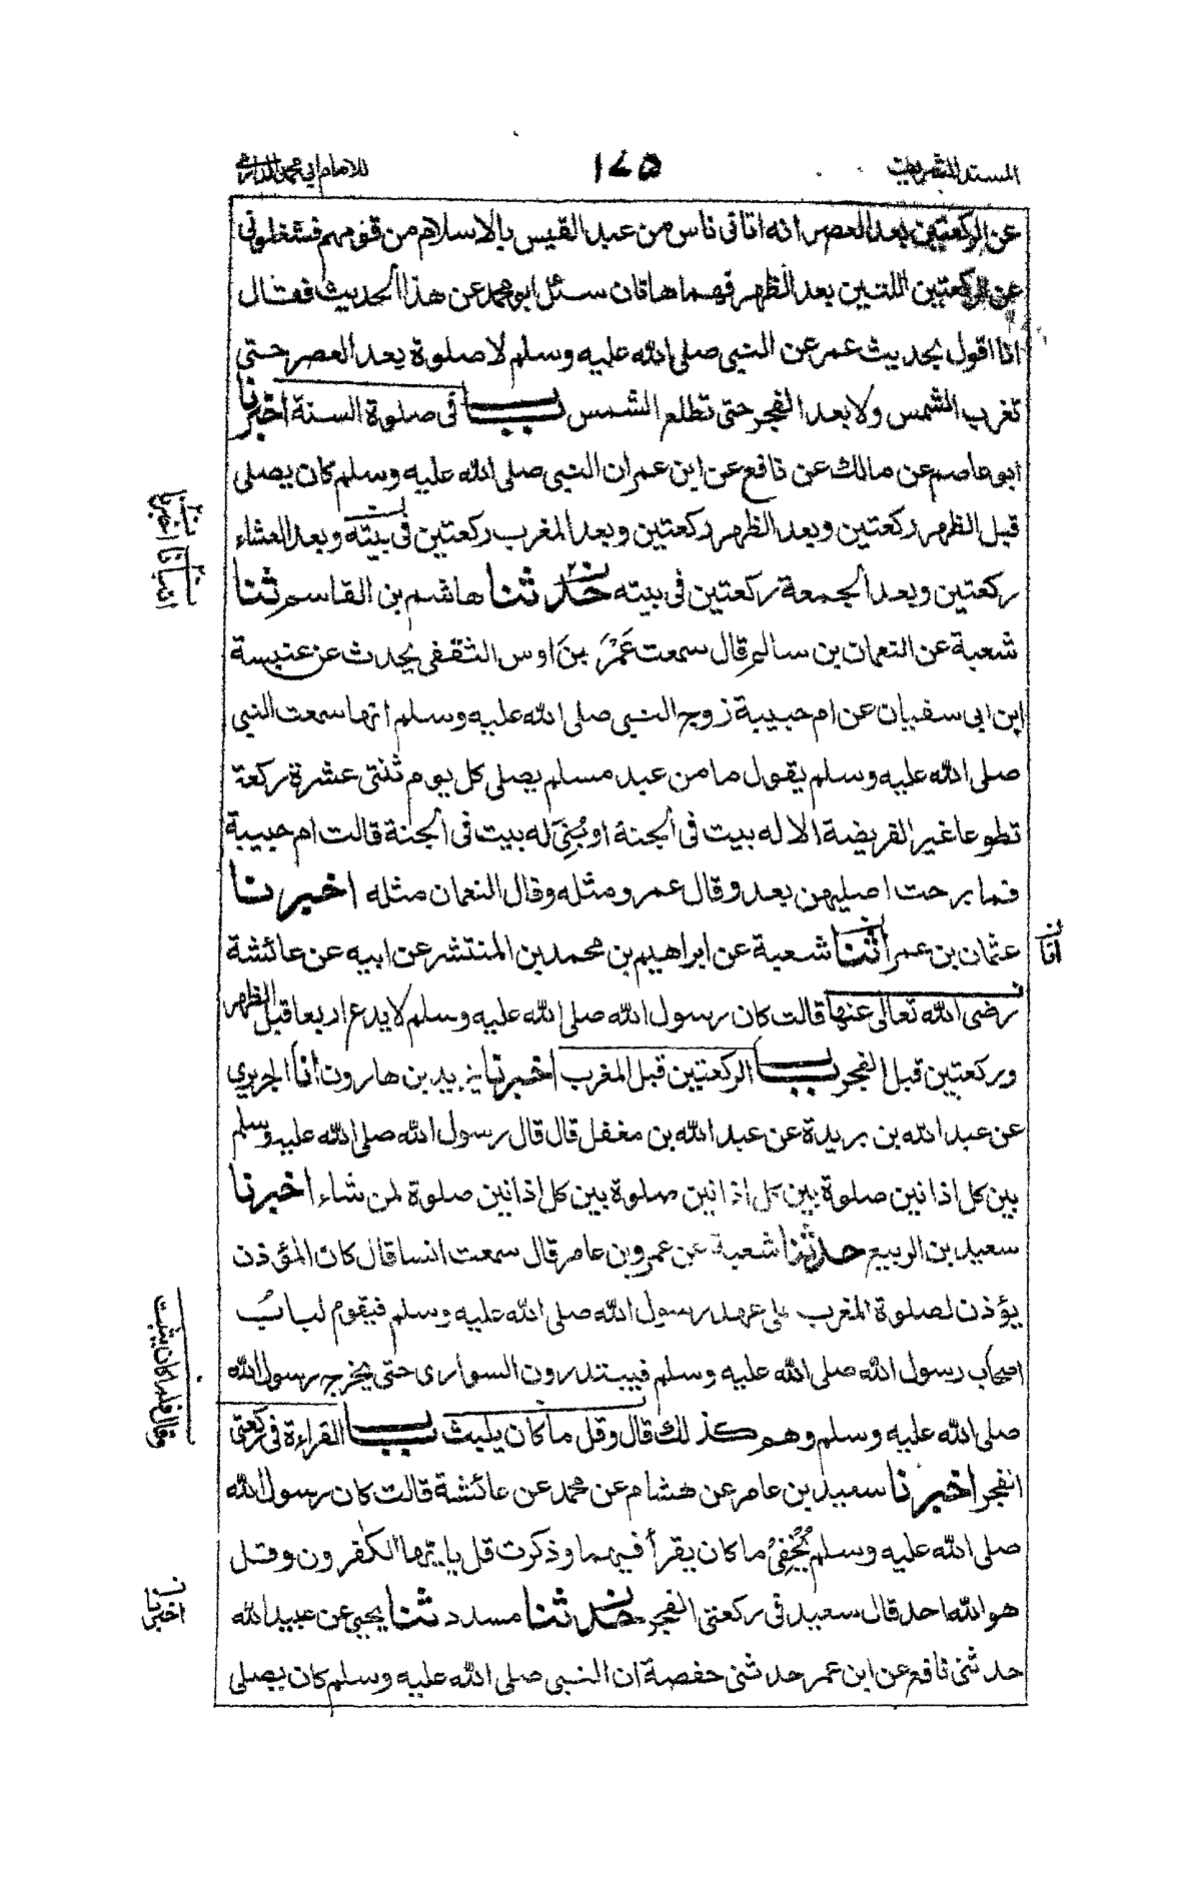 المسند الشريف
١٧٥
للامام ابي محمد الدارمي
عن الركعتين بعد العصر انه اتاني ناس من عبد القيس بالاسلام من قومهم فشغلوني
عن الركعتين اللتين بعد الظهر فهما هاتان سئل ابو محمد عن هذا الحديث فقال
انا اقول بحديث عمر عن النبي صلى الله عليه وسلم لا صلوة بعد العصر حتى
تغرب الشمس ولا بعد الفجر حتى تطلع الشمس باب في صلوة السنة اخبرنا
ابو عاصم عن مالك عن نافع عن ابن عمر ان النبي صلى الله عليه وسلم كان يصلي
قبل الظهر ركعتين وبعد الظهر ركعتين وبعد المغرب ركعتين في بيته وبعد العشاء
ركعتين وبعد الجمعة ركعتين في بيته حدثنا هاشم بن القاسم ثنا
شعبة عن النعمان بن سالم قال سمعت عَمْرَ بنَ اوس الثقفي يحدث عن عنبسة
ابن ابي سفيان عن ام حبيبة زوج النبي صلى الله عليه وسلم انها سمعت النبي
صلى الله عليه وسلم يقول ما من عبد مسلم يصلي كل يوم ثنتي عشرة ركعة
تطوعا غير الفريضة الا له بيت في الجنة او بُنِيَ له بيت في الجنة قالت ام حبيبة
فما برحت اصليهن بعد وقال عمرو مثله وقال النعمان مثله اخبرنا
عثمان بن عمر ثنا شعبة عن ابراهيم بن محمد بن المنتشر عن ابيه عن عائشة
رضي الله تعالى عنها قالت كان رسول الله صلى الله عليه وسلم لا يدع اربعا قبل الظهر
وركعتين قبل الفجر باب الركعتين قبل المغرب اخبرنا يزيد بن هارون انا الجريري
عن عبد الله بن بريدة عن عبد الله بن مغفل قال قال رسول الله صلى الله عليه وسلم
بين كل اذانين صلوة بين كل اذانين صلوة بين كل اذانين صلوة لمن شاء اخبرنا
سعيد بن الربيع حدثنا شعبة عن عمرو بن عامر قال سمعت انسا قال كان المؤذن
يؤذن لصلوة المغرب على عهد رسول الله صلى الله عليه وسلم فيقوم لبابُ
اصحاب رسول الله صلى الله عليه وسلم فيبتدرون السواري حتى يخرج رسول الله
صلى الله عليه وسلم وهم كذلك قال وقل ما كان يلبث باب القراءة في ركعتي
الفجر اخبرنا سعيد بن عامر عن هشام عن محمد عن عائشة قالت كان رسول الله
صلى الله عليه وسلم يُخْفِيْ ما كان يقرأ فيهما وذكرت قل يايها الكفرون وقل
هو الله احد قال سعيد في ركعتي الفجر حدثنا مسدد ثنا يحيى عن عبيد الله
حدثني نافع عن ابن عمر حدثني حفصة ان النبي صلى الله عليه وسلم كان يصلي
ثنا اخبرنا
انبانا اخبرنا
انا
وقال قلما كان يلبث
اخبرنا